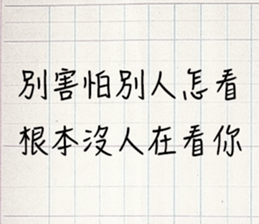 別害怕別人怎看
根本沒人在看你